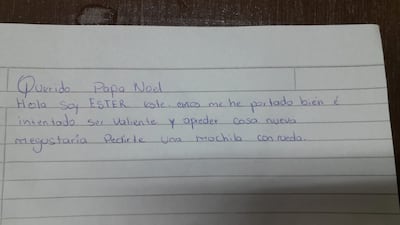 Querido Papa Noel
Hola soy ESTER este me he portado bien é
intentado ser valiente y apreder cosa nueva
megustaría Pedirte una mochila con rueda.